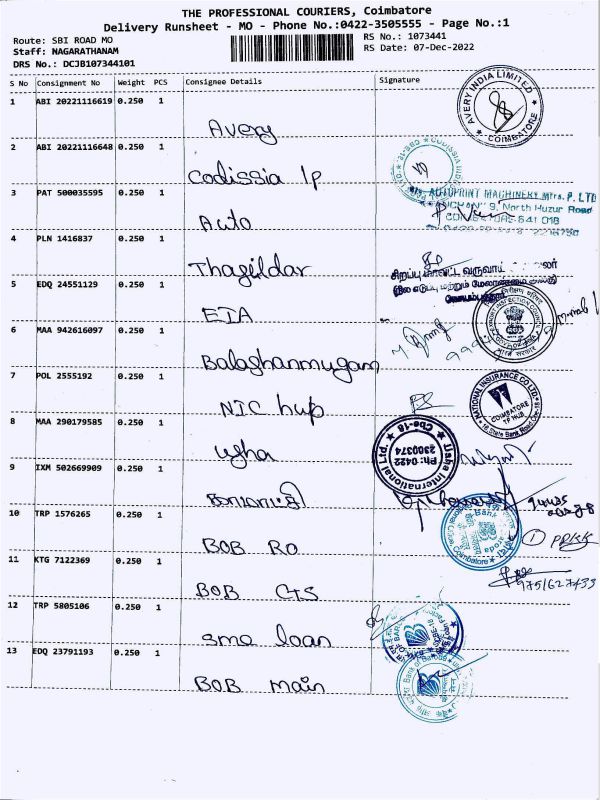 THE PROFESSIONAL COURIERS, Coimbatore
Delivery Runsheet - MO - Phone No.:0422-3505555 - Page No.:1
Route: SBI ROAD MO
RS No.: 1073441
Staff: NAGARATHANAM
RS Date: 07-Dec-2022
DRS No.: DCJB107344101
S No Consignment No Weight PCS Consignee Details Signature
1 ABI 20221116619 0.250 1
Avery
AVERY INDIA LIMITED COIMBATORE
2 ABI 20221116648 0.250 1
Codissia Ip
3 PAT 500035595 0.250 1
Auto
AUTOPRINT MACHINERY Mfrs. P. LTD
9, North Huzur Road
4 PLN 1416837 0.250 1
Thagildar
சிறப்பு மாவட்ட வருவாய்
5 EDQ 24551129 0.250 1
EIA
6 MAA 942616097 0.250 1
Balashanmugam
7 POL 2555192 0.250 1
NIC hup
NATIONAL INSURANCE CO LTD
COIMBATORE
TP HUB
State Bank Road
8 MAA 290179585 0.250 1
Usha
Usha International Ltd. Cbe-18
Ph: 0422
2300374
9 IXM 502669909 0.250 1
10 TRP 1576265 0.250 1
BOB RO
Coimbatore
11 KTG 7122369 0.250 1
BOB CTS
9751627433
12 TRP 5805106 0.250 1
sme loan
13 EDQ 23791193 0.250 1
BOB main
Bank of Baroda